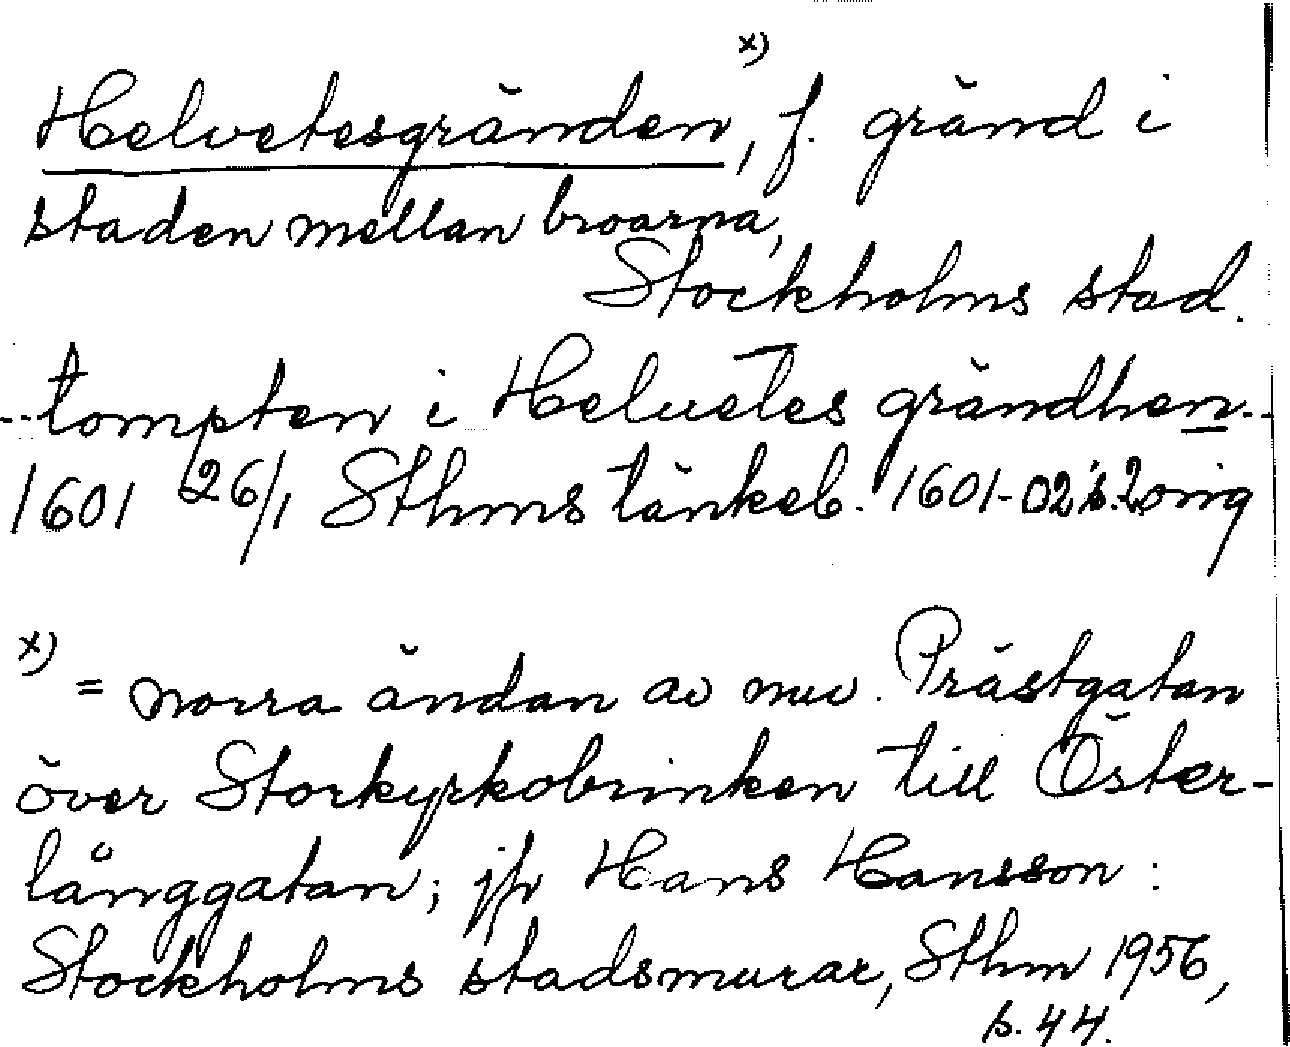 Helvetesgränden, x) f. gränd i
staden mellan broarna,
Stockholms stad.
--tompten i Heluetes grändhen--
1601 26/1 Sthms tänkeb. 1601-02 s. 2 orig
x) = norra ändan av nuv. Prästgatan
över Storkyrkobrinken till Öster-
långgatan; jfr Hans Hansson:
Stockholms stadsmurar, Sthm 1956,
s. 44.